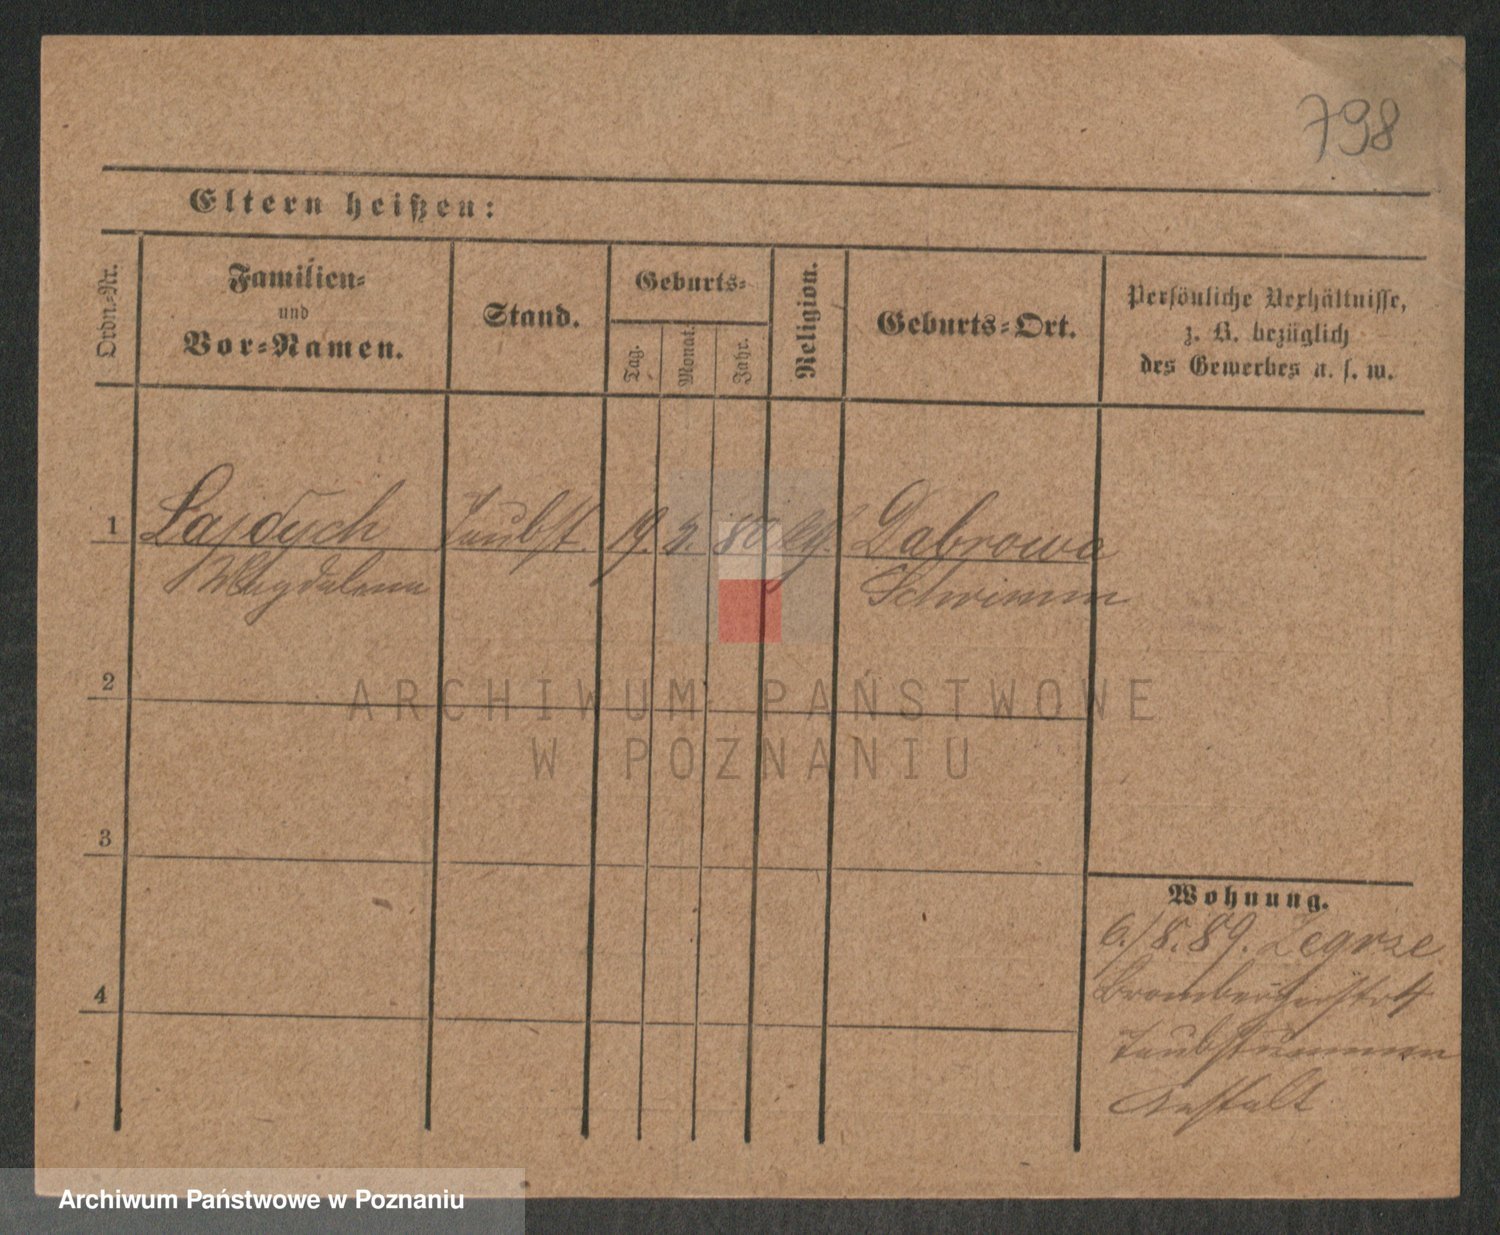 798
Eltern heißen:
Ordn.-Nr.
Familien-
und
Vor-Namen.
Stand.
Geburts-
Tag.
Monat.
Jahr.
Religion.
Geburts-Ort.
Persönliche Verhältnisse,
z. B. bezüglich
des Gewerbes u. s. w.
1 Lajdych Taubst. 19. 80 Dabrowo
Magdalena Schrimm
2
ARCHIWUM PAŃSTWOWE
W POZNANIU
3
Wohnung.
6./8.89. Zegrze
Brombergerstr 4
4
Taubstummen
Anstalt
Archiwum Państwowe w Poznaniu